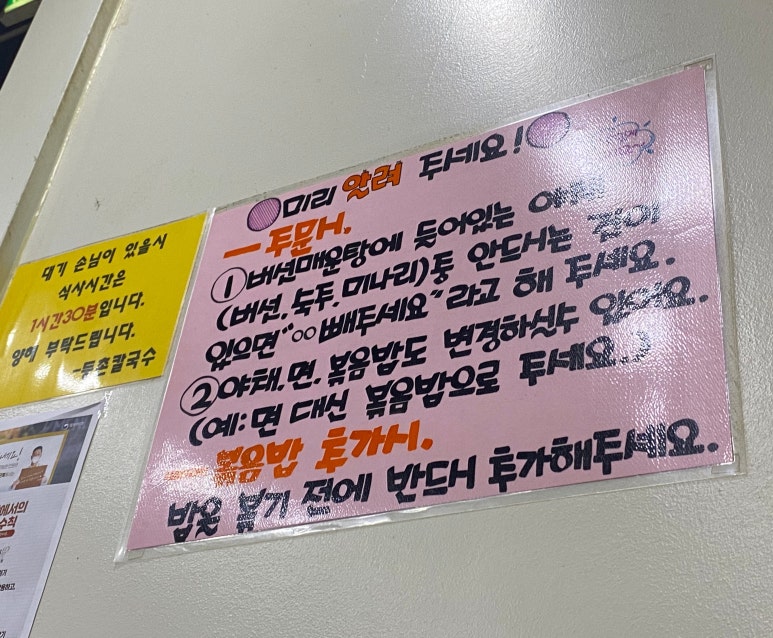 대기 손님이 있을시
식사시간은
1시간30분입니다.
양해 부탁드립니다.
-등촌칼국수
미리 알려 두세요!
- 주문시.
① 버섯매운탕에 들어있는 야채
(버섯.숙주.미나리)통 안드시는 것이
있으면 "○○빼주세요"라고 해 주세요.
② 야채.면.볶음밥도 변경하실수 있어요.
(예:면 대신 볶음밥으로 주세요.)
- 볶음밥 추가시.
밥을 볶기 전에 반드시 추가해주세요.
에서의
수칙